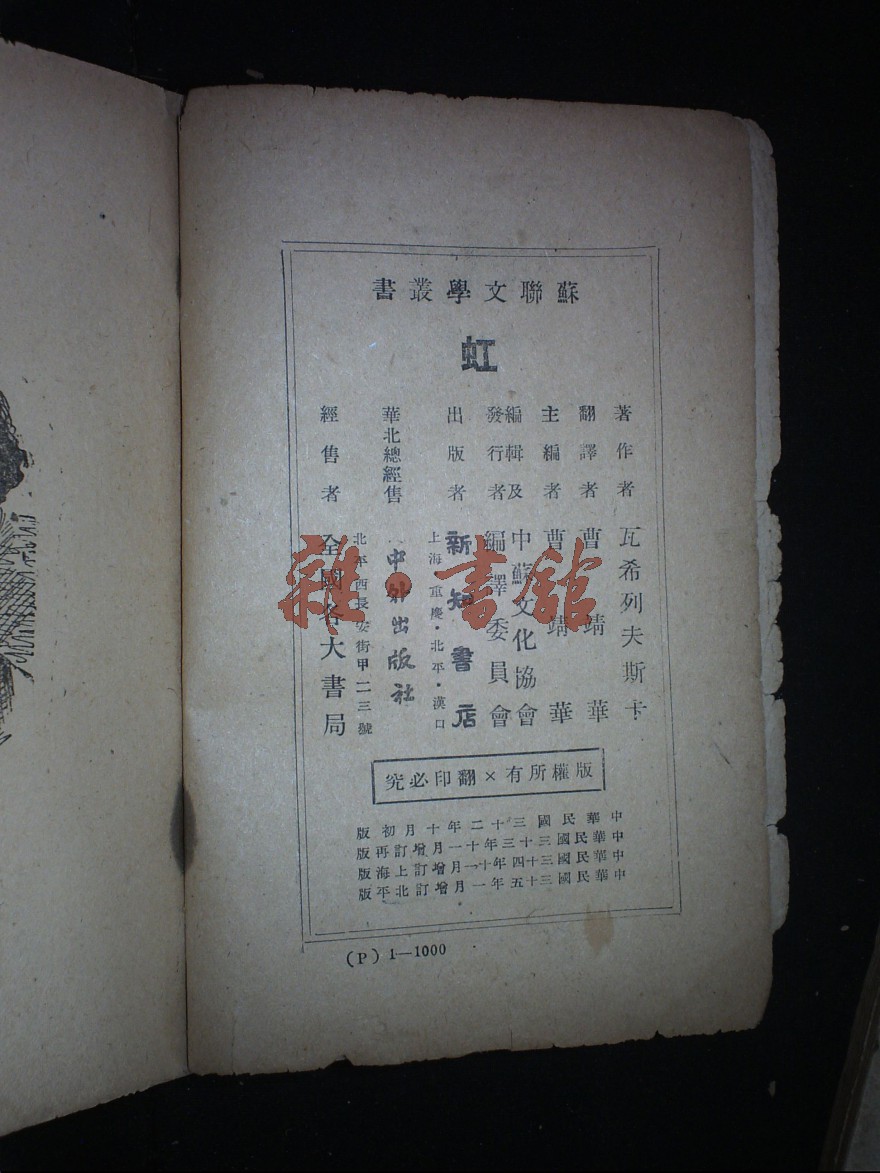 蘇聯文學叢書
虹
著作者 瓦希列夫斯卡
翻譯者 曹靖華
主編者 曹靖華
編輯及發行者 中蘇文化協會編譯委員會
出版者 新知書店
上海·重慶·北平·漢口
華北總經售 中外出版社
北平西長安街甲二三號
經售者 全國各大書局
版權所有×翻印必究
中華民國三十二年十月初版
中華民國三十三年十一月增訂再版
中華民國三十四年十一月增訂上海版
中華民國三十五年一月增訂北平版
(P) 1—1000
雜·書館